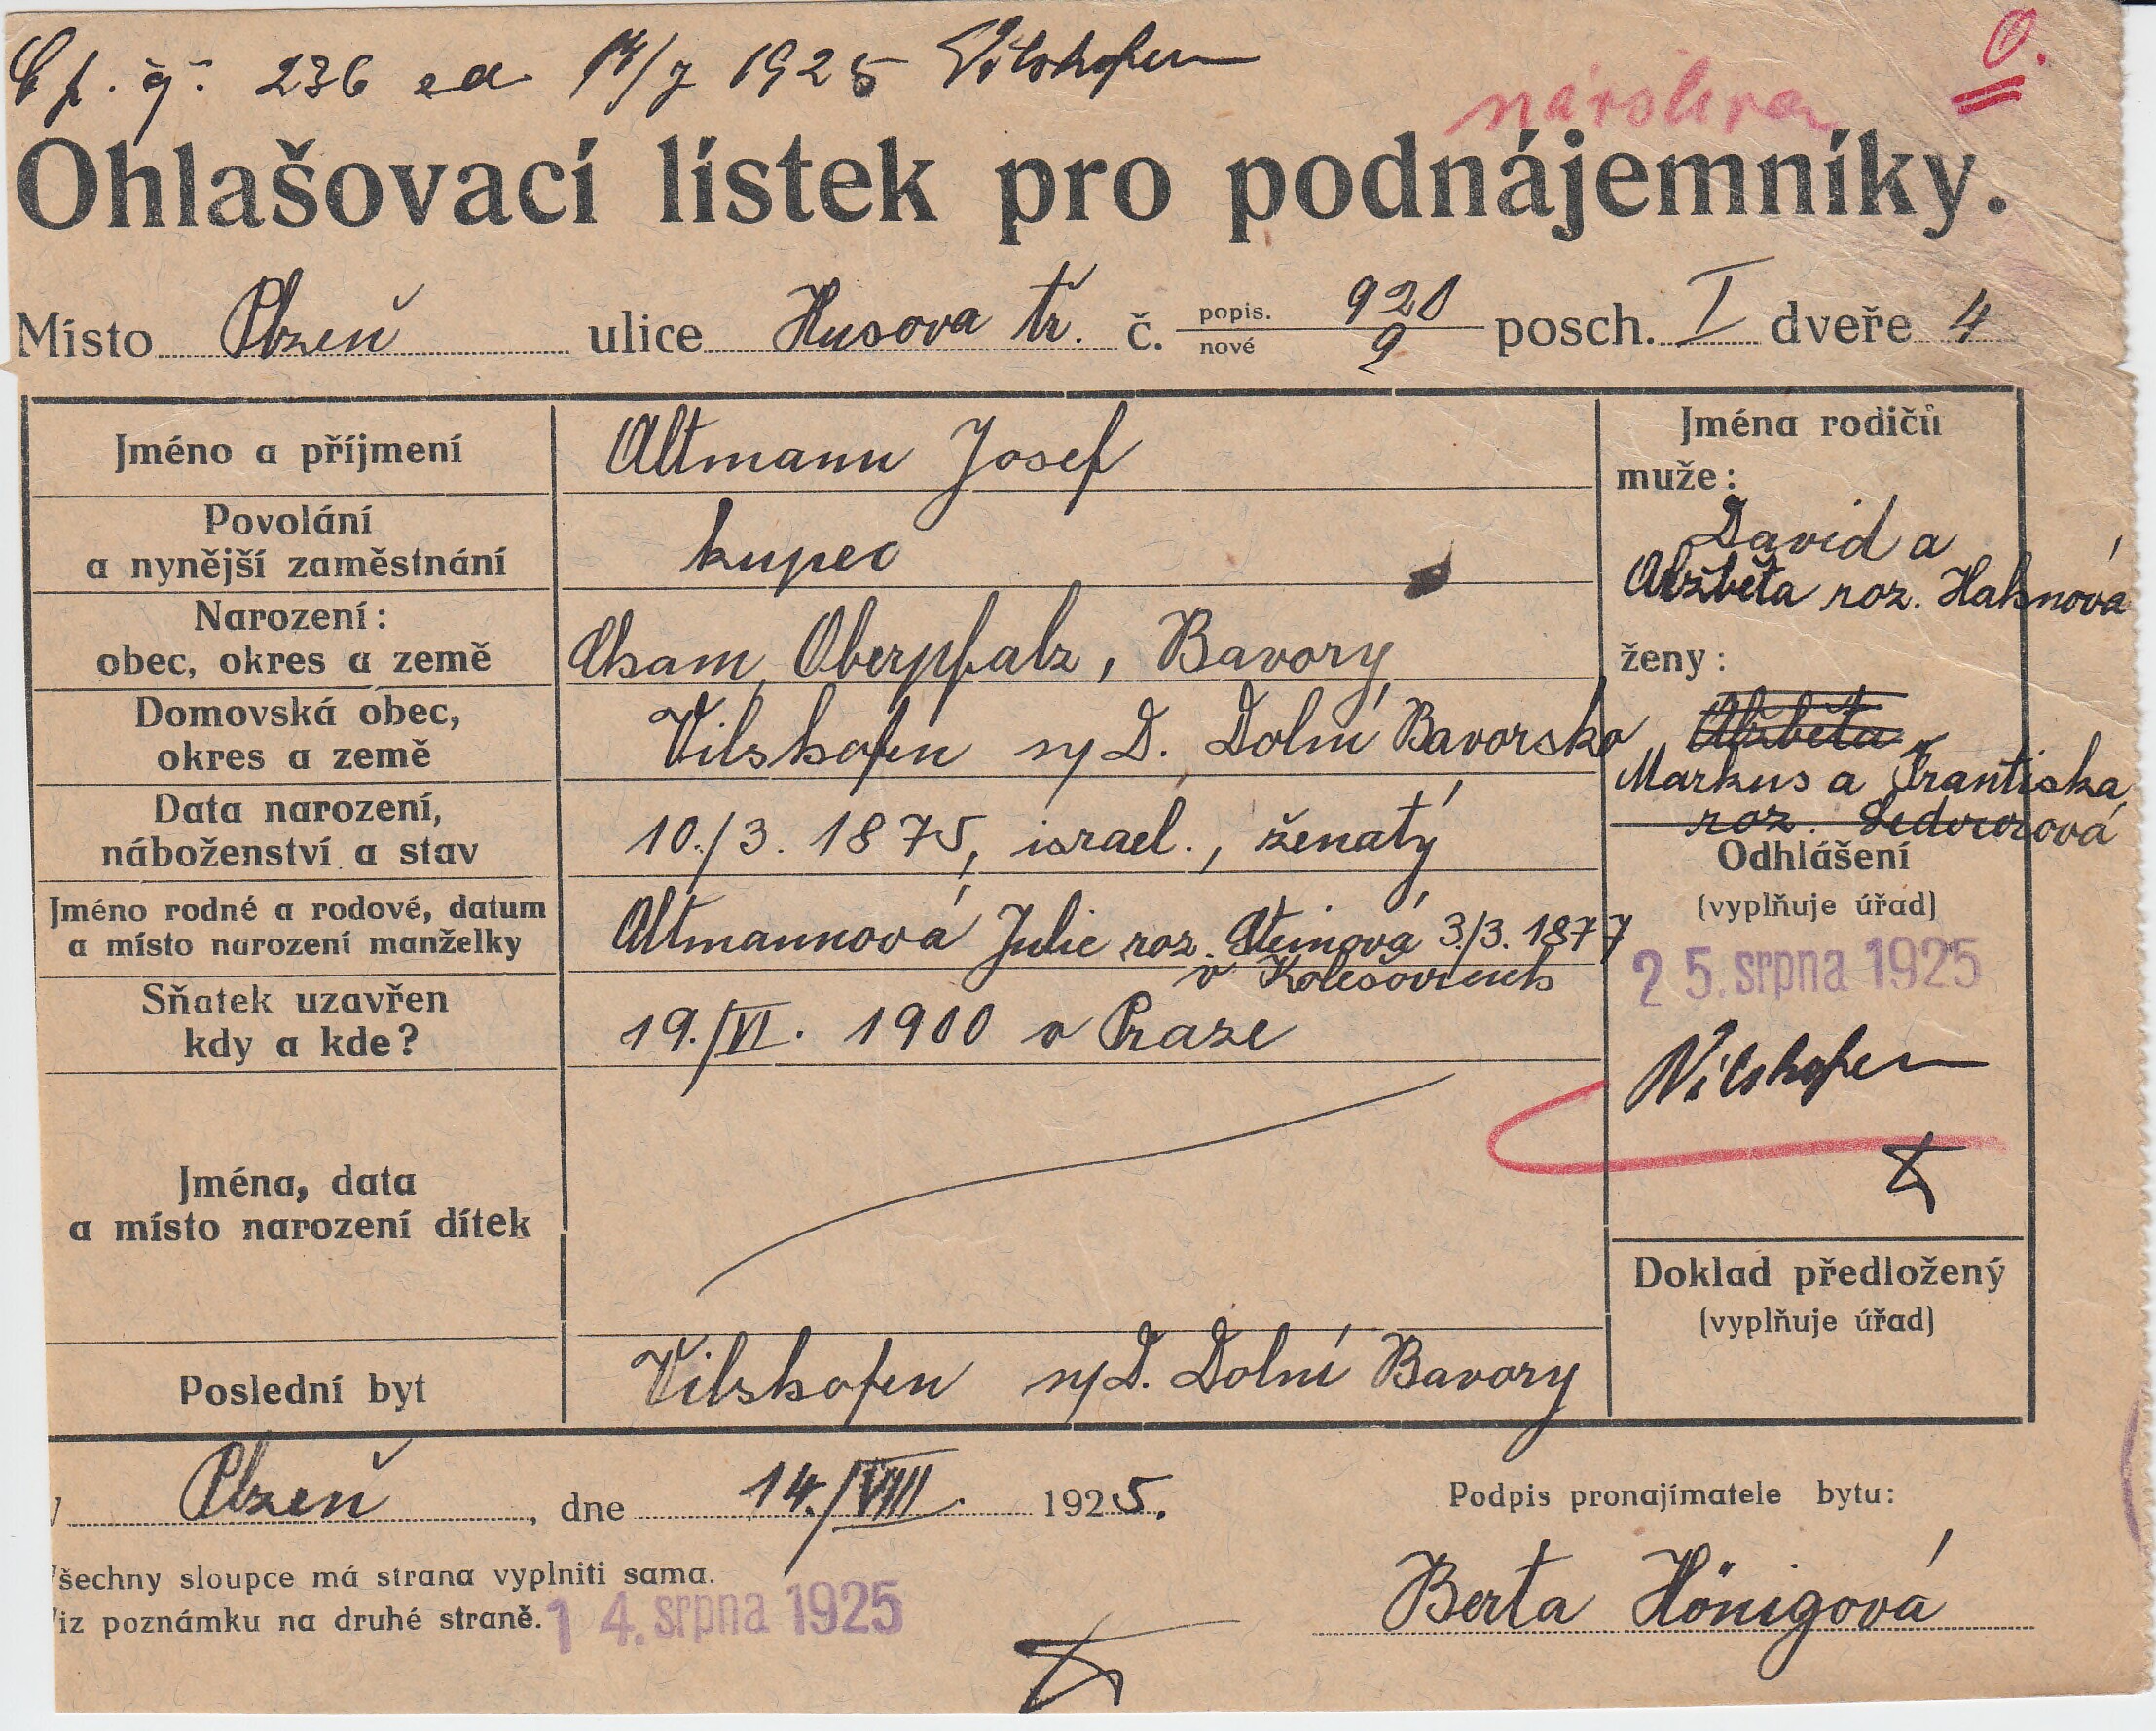 č. 236 za 14/7 1925 Vilshofen
O.
Ohlašovací lístek pro podnájemníky.
Místo Plzeň ulice Husova tř. č. popis. 920 nové 9 posch. I dveře 4
Jméno a příjmení
Altmann Josef
Povolání
a nynější zaměstnání
kupec
Narození:
obec, okres a země
Cham, Oberpfalz, Bavory
Domovská obec,
okres a země
Vilshofen n/D. Dolní Bavorsko
Data narození,
náboženství a stav
10./3. 1875, israel., ženatý
Jméno rodné a rodové, datum
a místo narození manželky
Altmannová Julie roz. Steinová 3./3. 1877
v Kolešovicích
Sňatek uzavřen
kdy a kde?
19./VI. 1900 v Praze
Jména, data
a místo narození dítek
Poslední byt
Vilshofen n/D. Dolní Bavory
Jména rodičů
muže:
David a
Alžběta roz. Hahnová
ženy:
Alžběta
Markus a Františka
roz.
Odhlášení
(vyplňuje úřad)
25. srpna 1925
Vilshofen
Doklad předložený
(vyplňuje úřad)
Plzeň, dne 14./VIII. 1925.
Podpis pronajímatele bytu:
Všechny sloupce má strana vyplniti sama.
Viz poznámku na druhé straně.
14. srpna 1925
Berta Hönigová